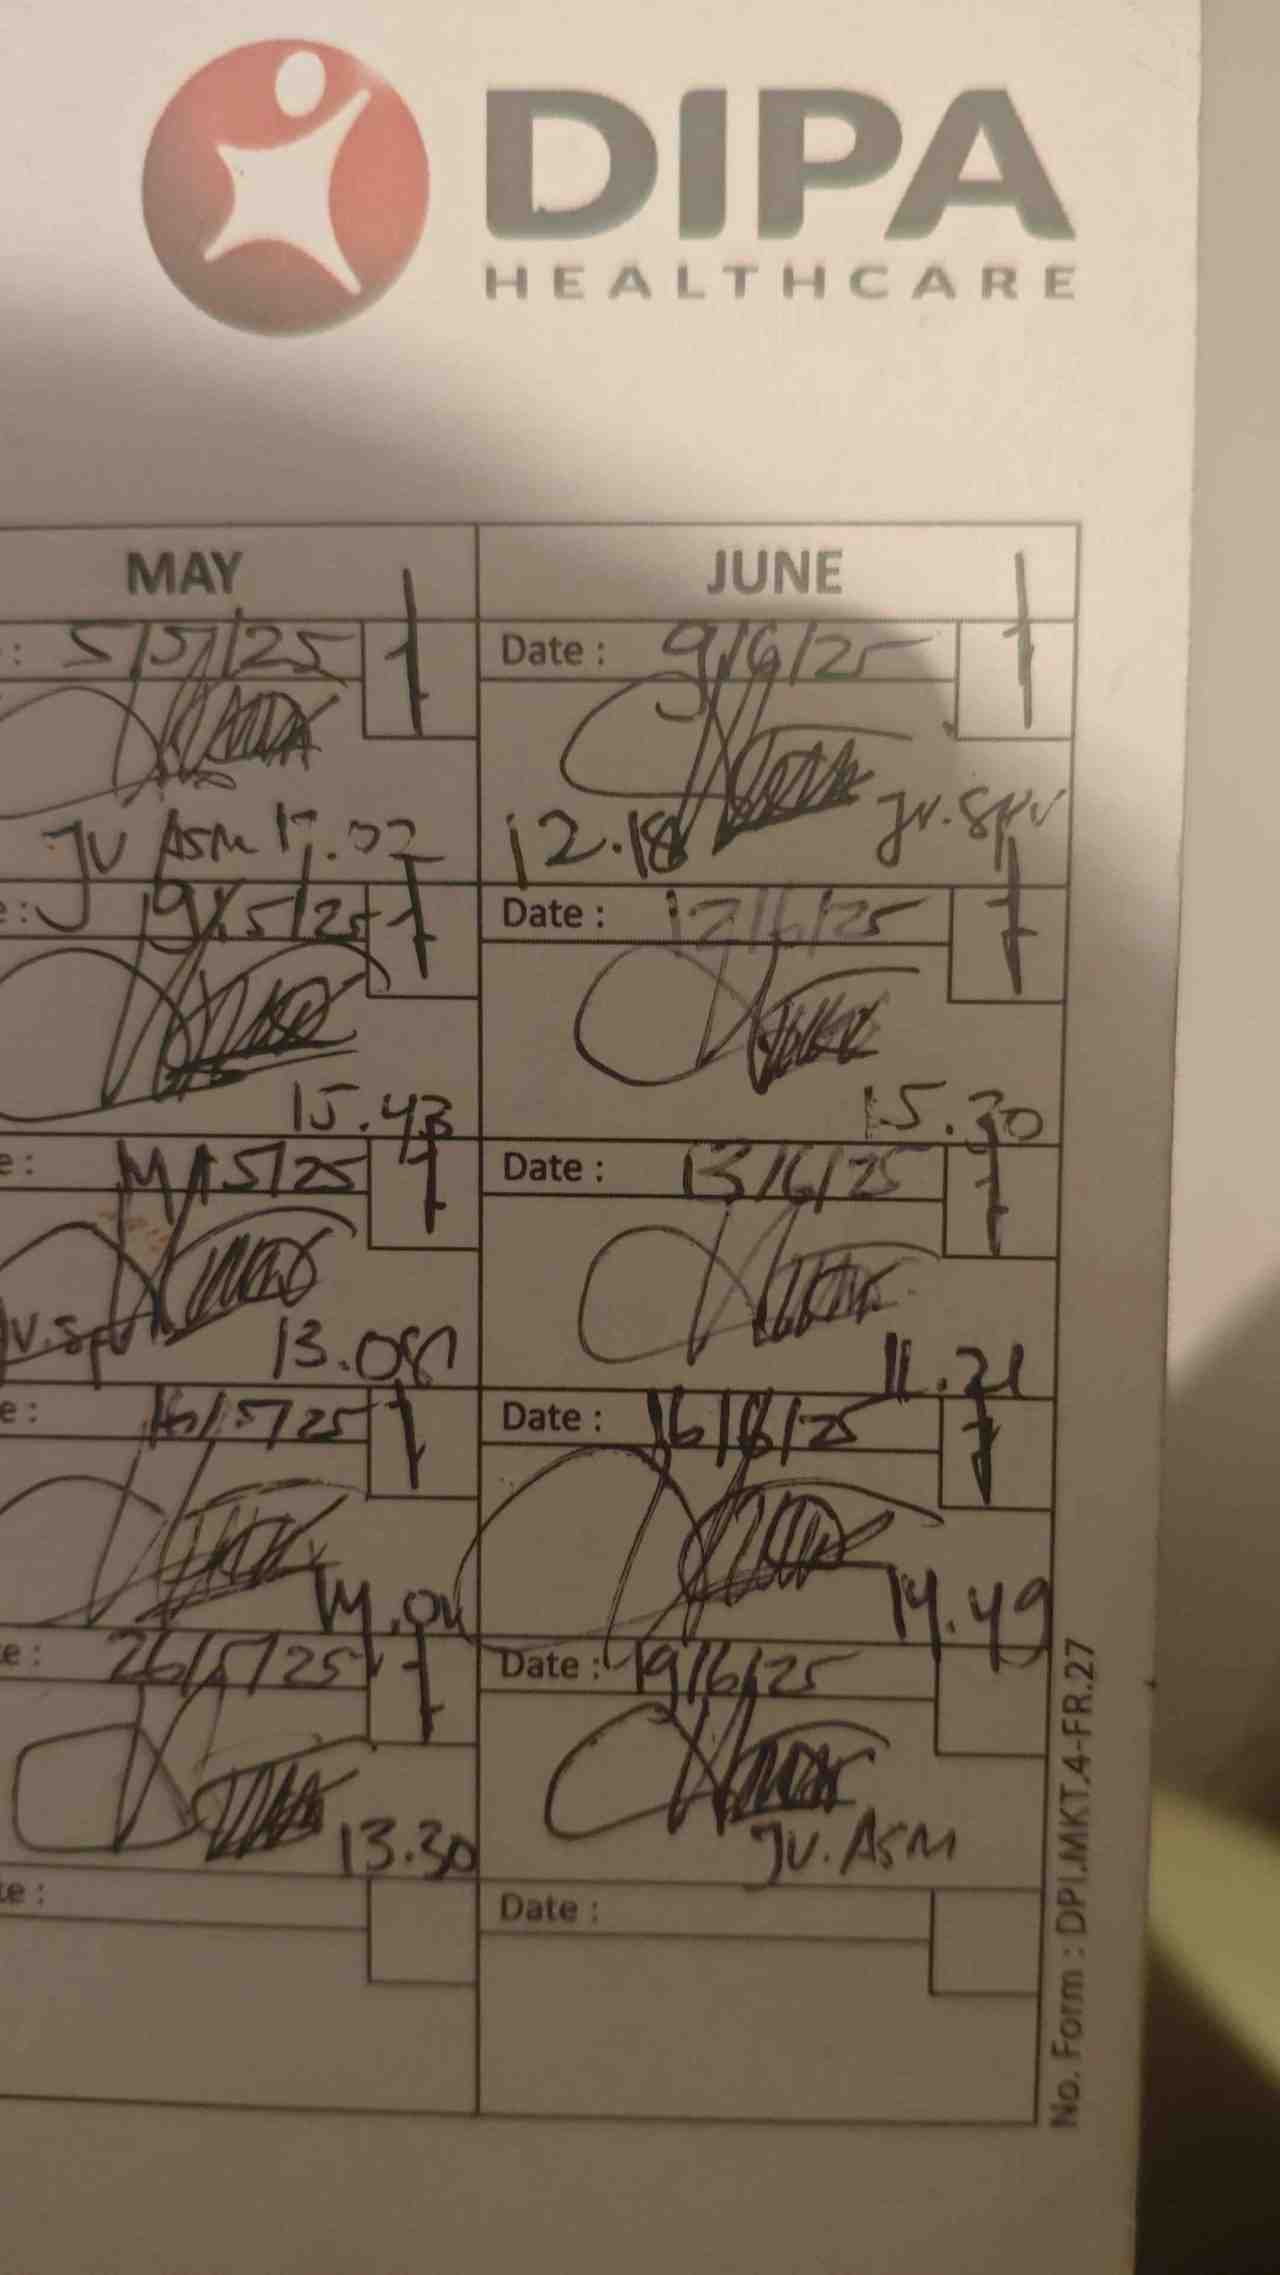 DIPA
HEALTHCARE
MAY
JUNE
: 5/5/25
Date : 9/6/25
JV ASM 17.02
12.18 JV. SPV
e : 9/5/25
Date : 12/6/25
15.43
15.30
e : 14/5/25
Date : 13/6/25
13.08
11.21
e : 16/5/25
Date : 16/6/25
14.04
14.49
te : 26/5/25
Date : 19/6/25
13.30
JV. ASM
te :
Date :
No. Form : DPI.MKT.4-FR.27